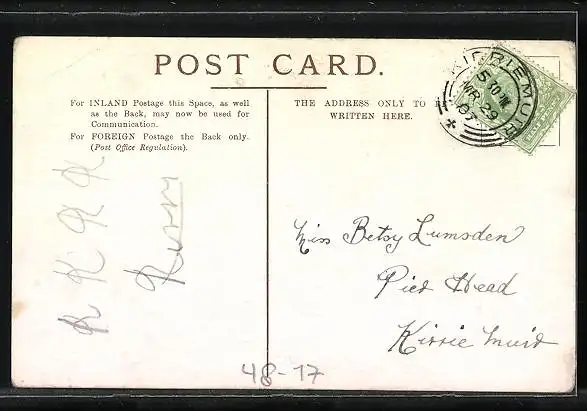 POST CARD.
For INLAND Postage this Space, as well
as the Back, may now be used for
Communication.
For FOREIGN Postage the Back only.
(Post Office Regulation).
THE ADDRESS ONLY TO BE
WRITTEN HERE.
KIRRIEMUIR
5.10 PM
MR 29
07
Miss Betsy Lumsden
Pier Head
Kirrie muir
K K K K
48-17